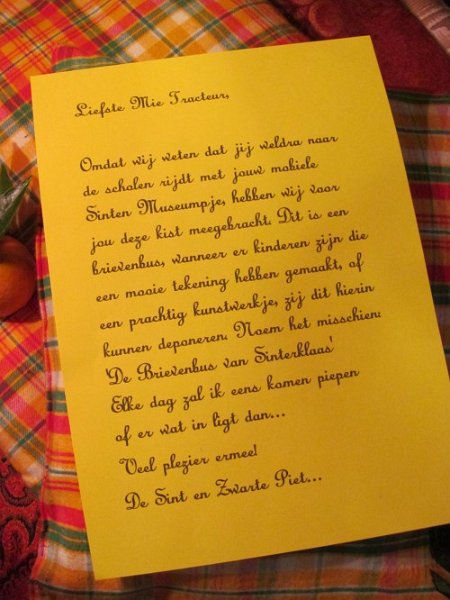 Liefste Mie Tracteur,
Omdat wij weten dat jij weldra naar
de scholen rijdt met jouw mobiele
Sinten Museumpje, hebben wij voor
jou deze kist meegebracht. Dit is een
brievenbus, wanneer er kinderen zijn die
een mooie tekening hebben gemaakt, of
een prachtig kunstwerkje, zij dit hierin
kunnen deponeren. Noem het misschien:
'De Brievenbus van Sinterklaas'
Elke dag zal ik eens komen piepen
of er wat in ligt dan...
Veel plezier ermee!
De Sint en Zwarte Piet...